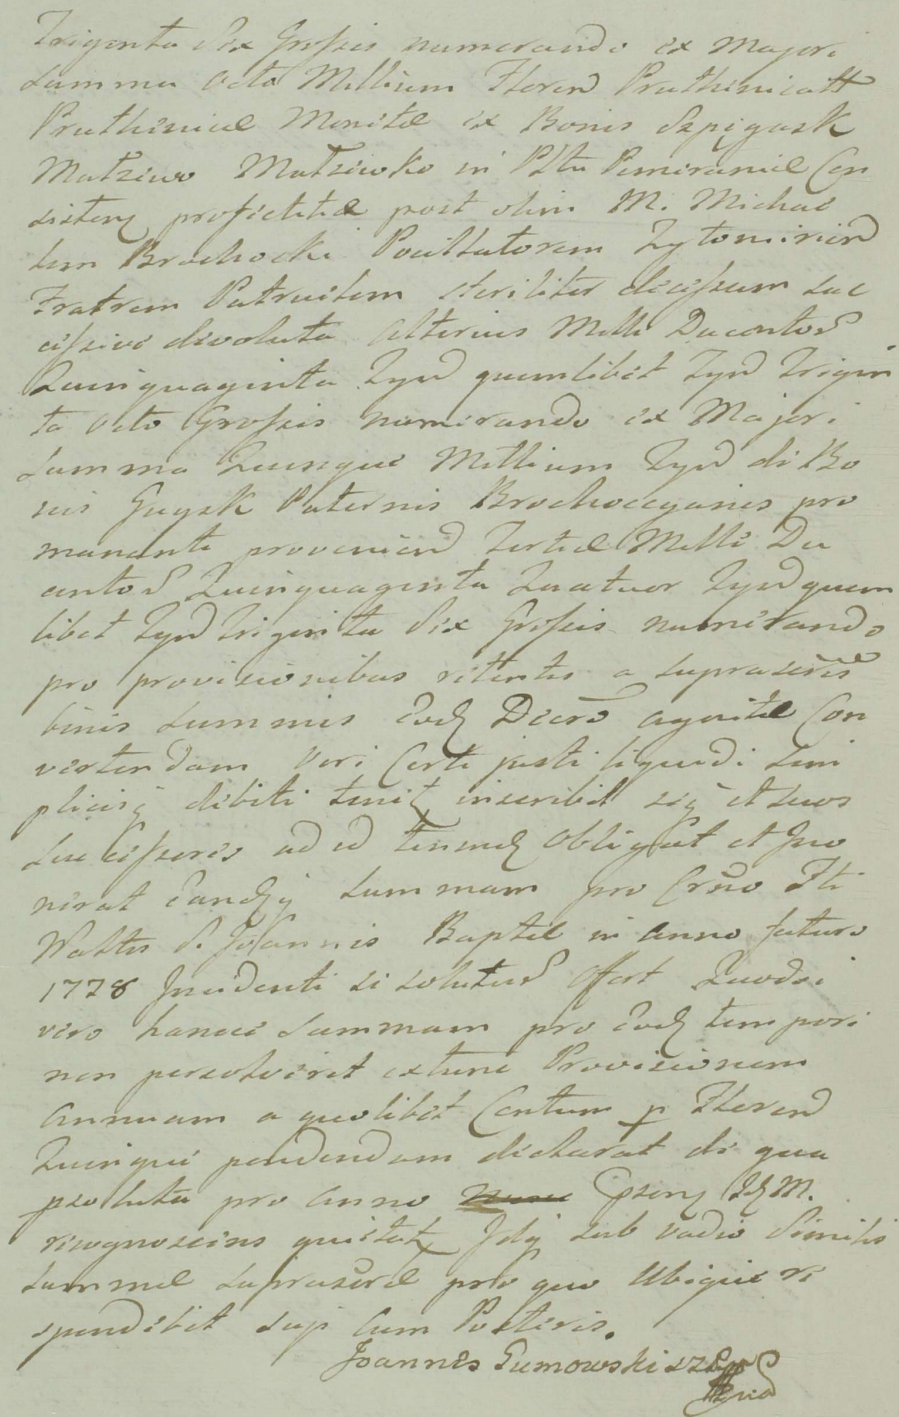 Triginta Sex Grossis numerando ex Majori
Summa Octo Millium Floren Pruthenicali
Pruthenicae Monitae ex Bonis Szpigask
Matziwo Matziwko in Pttu Pomiraniae Con
sisten profictitae post olim M. Michae
lem Brochocki Pocillatorem Zytomirien
Fratrem Patruelem steriliter decessum suc
cessive devoluta Alterius Mille Ducentos
Quinquaginta Tyn quemlibet Tyn Trigin
ta Octo Grossis numerando ex Majori
Summa Quinque Millium Tyn de Bo
nis Guysk Paternis Brochoccyanis pro
mananti provenien Tertiae Mille Du
centos Quinquaginta Quatuor Tyn quem
libet Tyn Triginta Sex Grossis numerando
pro provisionibus retentis a suprascris
binis summis Eod Decro agnitae Con
vertendam Veri Certi justi liquidi sim
plicisq debiti tenet inscribit seq et suos
Successores ad id tenend Obligat et Juo
nerat Eandq summam pro Crno Fti
Walts S. Joannis Baptae in anno futuro
1778 Incidenti se soluturu Offert Quodsi
vero hance Summam pro Eod tempori
non persolveret extunc Provisionem
Annuam a quolibet Centum p Floren
Quinque pendendam declarat de qua
psoluta pro Anno Gpsen Id M.
recognoscens quietat Idq sub vadio Similis
Summae suprascrae pro quo Ubique re
spondebit sup cum Posteris.
Joannes Gumowski